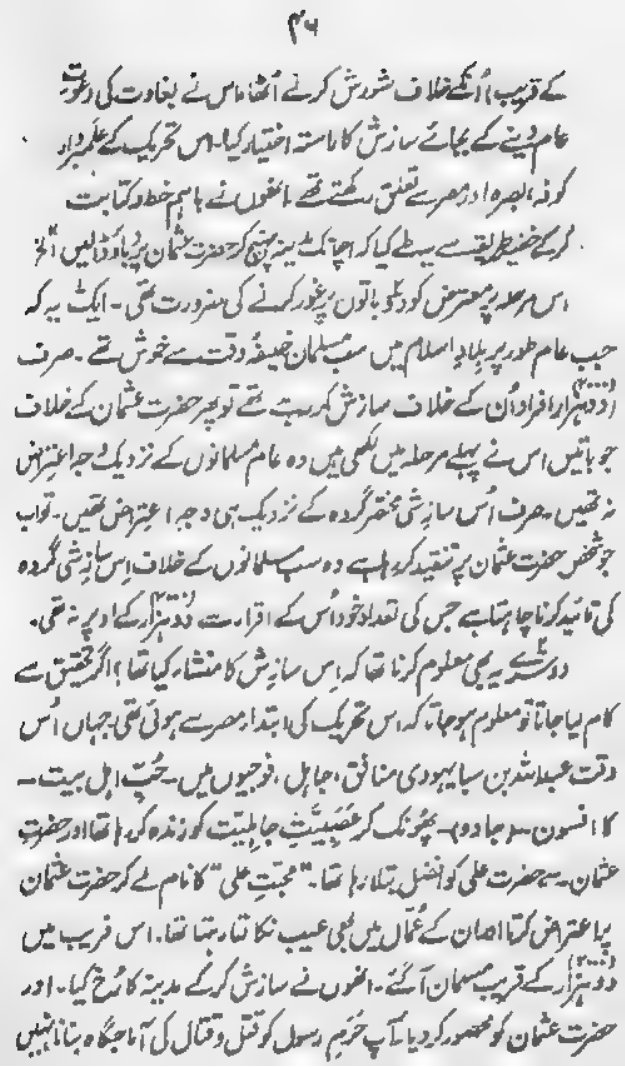 ۴۶
کے قریب) اُنکے خلاف شورش کرنے اُٹھا۔ اس نے بغاوت کی دعوت
عام دینے کے بجائے سازش کا راستہ اختیار کیا۔ اس تحریک کے علمبردار
کوفہ، بصرہ اور مصر سے تعلق رکھتے تھے۔ انھوں نے باہم خط و کتابت
کرکے خفیہ طریقے سے یہ طے کیا کہ اچانک مدینہ پہنچ کر حضرت عثمان پر دباؤ ڈالیں" الخ
اس مرحلہ پر معترض کو دو باتوں پر غور کرنے کی ضرورت تھی۔ ایک یہ کہ
جب عام طور پر بلادِ اسلام میں سب مسلمان خلیفۂ وقت سے خوش تھے۔ صرف
(۲۰۰۰) دو ہزار افراد اُن کے خلاف سازش کر رہے تھے تو پھر حضرت عثمان کے خلاف
جو باتیں اس نے پہلے مرحلہ میں لکھی ہیں وہ عام مسلمانوں کے نزدیک وجہ اعتراض
نہ تھیں۔ صرف اُس سازشی مختصر گروہ کے نزدیک ہی وجہ اعتراض تھیں۔ تو اب
جو شخص حضرت عثمان پر تنقید کر رہا ہے وہ سب مسلمانوں کے خلاف اِس سازشی گروہ
کی تائید کرنا چاہتا ہے جس کی تعداد خود اُس کے اقرار سے (۲۰۰۰) دو ہزار کے اوپر نہ تھی۔
دوسرے یہ بھی معلوم کرنا تھا کہ اِس سازش کا منشاء کیا تھا؟ اگر تحقیق سے
کام لیا جاتا تو معلوم ہو جاتا کہ اس تحریک کی ابتداء مصر سے ہوئی تھی جہاں اُس
وقت عبداللہ بن سبا یہودی منافق، جاہل، فوجیوں میں۔ حُبِّ اہل بیت۔
کا افسون۔ (جادو)۔ پھونک کر عَصَبِیَّتِ جاہلیّت کو زندہ کر رہا تھا اور حضرت
عثمان۔ سے حضرت علی کو افضل بتلا رہا تھا۔ "محبّتِ علی" کا نام لے کر حضرت عثمان
پر اعتراض کرتا اور ان کے عُمّال میں بھی عیب نکالتا رہتا تھا۔ اس فریب میں
(۲۰۰۰) دو ہزار کے قریب مسلمان آگئے۔ انھوں نے سازش کرکے مدینہ کا رُخ کیا۔ اور
حضرت عثمان کو محصور کردیا۔ آپ حَرَمِ رسول کو قتل و قتال کی آماجگاہ بنانا نہیں